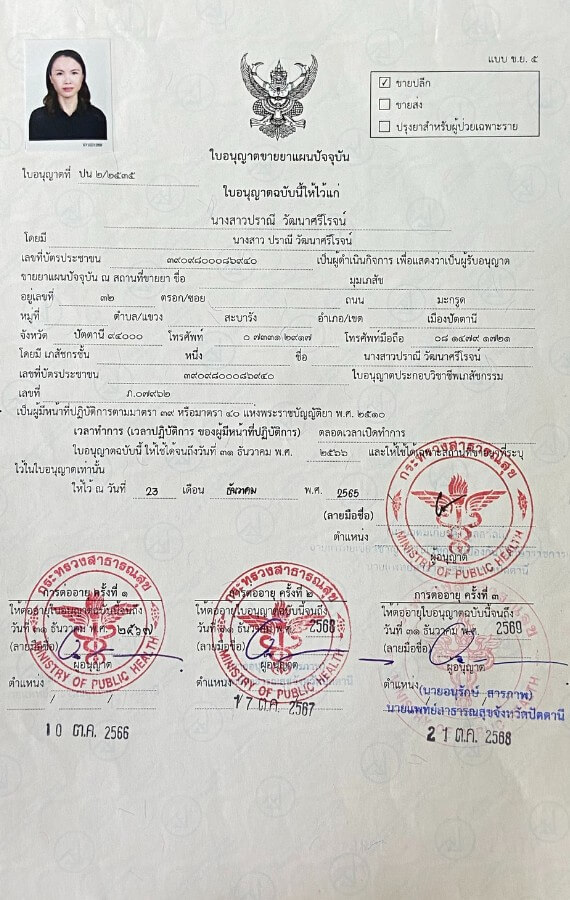 แบบ ข.ย. ๕
✓ ขายปลีก
ขายส่ง
ปรุงยาสำหรับผู้ป่วยเฉพาะราย
ใบอนุญาตขายยาแผนปัจจุบัน
ใบอนุญาตที่ ปน ๒/๒๕๓๕
ใบอนุญาตฉบับนี้ให้ไว้แก่
นางสาวปราณี วัฒนาศรีโรจน์
โดยมี นางสาว ปราณี วัฒนาศรีโรจน์
เลขที่บัตรประชาชน ๓๙๐๙๘๐๐๐๘๖๙๔๐ เป็นผู้ดำเนินกิจการ เพื่อแสดงว่าเป็นผู้รับอนุญาต
ขายยาแผนปัจจุบัน ณ สถานที่ขายยา ชื่อ มุมเภสัช
อยู่เลขที่ ๓๒ ตรอก/ซอย ถนน มะกรูด
หมู่ที่ ตำบล/แขวง สะบารัง อำเภอ/เขต เมืองปัตตานี
จังหวัด ปัตตานี ๙๔๐๐๐ โทรศัพท์ ๐ ๗๓๓๑ ๒๙๑๗ โทรศัพท์มือถือ ๐๘ ๑๔๗๙ ๑๗๒๑
โดยมี เภสัชกรชั้น หนึ่ง ชื่อ นางสาวปราณี วัฒนาศรีโรจน์
เลขที่บัตรประชาชน ๓๙๐๙๘๐๐๐๘๖๙๔๐ ใบอนุญาตประกอบวิชาชีพเภสัชกรรม
เลขที่ ภ.๐๗๙๖๒
เป็นผู้มีหน้าที่ปฏิบัติการตามมาตรา ๓๙ หรือมาตรา ๔๐ แห่งพระราชบัญญัติยา พ.ศ. ๒๕๑๐
เวลาทำการ (เวลาปฏิบัติการ ของผู้มีหน้าที่ปฏิบัติการ) ตลอดเวลาเปิดทำการ
ใบอนุญาตฉบับนี้ ให้ใช้ได้จนถึงวันที่ ๓๑ ธันวาคม พ.ศ. ๒๕๖๖ และให้ใช้ได้เฉพาะสถานที่ขายยาที่ระบุ
ไว้ในใบอนุญาตเท่านั้น
ให้ไว้ ณ วันที่ 23 เดือน ธันวาคม พ.ศ. 2565
(ลายมือชื่อ)
ตำแหน่ง ผู้อนุญาต
กระทรวงสาธารณสุข
MINISTRY OF PUBLIC HEALTH
การต่ออายุ ครั้งที่ ๑
ให้ต่ออายุใบอนุญาตฉบับนี้จนถึง
วันที่ ๓๑ ธันวาคม พ.ศ. ๒๕๖๗
(ลายมือชื่อ)
ผู้อนุญาต
ตำแหน่ง
กระทรวงสาธารณสุข
MINISTRY OF PUBLIC HEALTH
10 ต.ค. 2566
การต่ออายุ ครั้งที่ ๒
ให้ต่ออายุใบอนุญาตฉบับนี้จนถึง
วันที่ ๓๑ ธันวาคม พ.ศ. 2568
(ลายมือชื่อ)
ผู้อนุญาต
ตำแหน่ง
กระทรวงสาธารณสุข
MINISTRY OF PUBLIC HEALTH
17 ต.ค. 2567
การต่ออายุ ครั้งที่ ๓
ให้ต่ออายุใบอนุญาตฉบับนี้จนถึง
วันที่ ๓๑ ธันวาคม พ.ศ. 2569
(ลายมือชื่อ)
ผู้อนุญาต
ตำแหน่ง
(นายอนุรักษ์ สารภาพ)
นายแพทย์สาธารณสุขจังหวัดปัตตานี
21 ต.ค. 2568